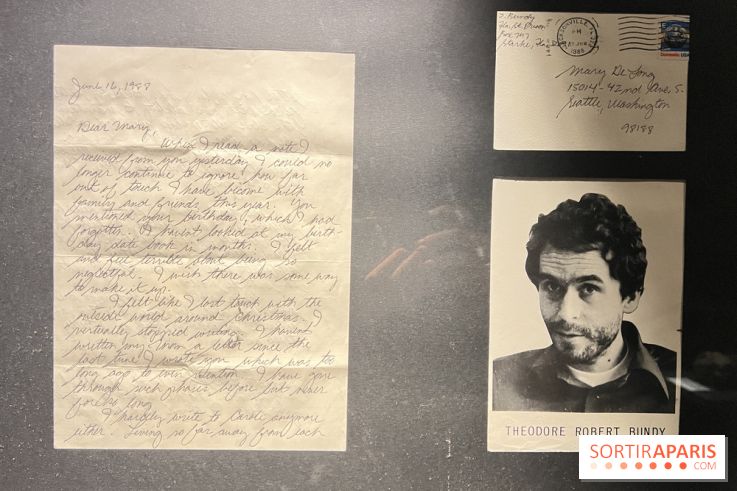 June 16, 1988
Dear Mary,
When I read a note I
received from you yesterday I could no
longer continue to ignore how far
out of touch I have become with
family and friends this year. You
mentioned your birthday, which I had
forgotten. I haven't looked at my birth-
day date book in months. I felt
and feel terrible about being so
neglectful. I wish there was some way
to make it up.
I felt like I lost touch with the
outside world around Christmas. I
virtually stopped writing. I haven't
written my mom a letter since the
last time I wrote you which was too
long ago to even mention. I have gone
through such phases before but never
for so long
I hardly write to Carole anymore
either. Living so far away from each
T. Bundy
Fla. St. Prison
Box 747
Starke, Fla.
JACKSONVILLE, FL
PM
JUN
1988
USA
Mary De Long
15014-42nd Ave. S.
Seattle, Washington
98188
THEODORE ROBERT BUNDY
SORTIRAPARIS
.COM